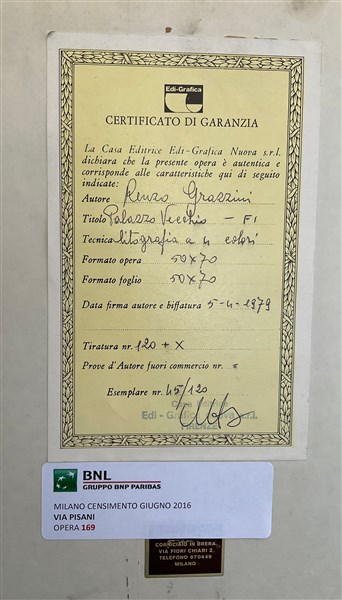 Edi-Grafica
CERTIFICATO DI GARANZIA
La Casa Editrice Edi-Grafica Nuova s.r.l.
dichiara che la presente opera è autentica e
corrisponde alle caratteristiche qui di seguito
indicate:
Autore Renzo Grazzini
Titolo Palazzo Vecchio - FI
Tecnica litografia a 4 colori
Formato opera 50x70
Formato foglio 50x70
Data firma autore e biffatura 5-4-1979
Tiratura nr. 120 + X
Prove d'Autore fuori commercio nr. =
Esemplare nr. 45/120
Casa
Edi - Grafica Nuova s.r.l.
FIRENZE
BNL
GRUPPO BNP PARIBAS
MILANO CENSIMENTO GIUGNO 2016
VIA PISANI
OPERA 169
CORNICIATO IN BRERA
VIA FIORI CHIARI 2.
TELEFONO 870449
MILANO